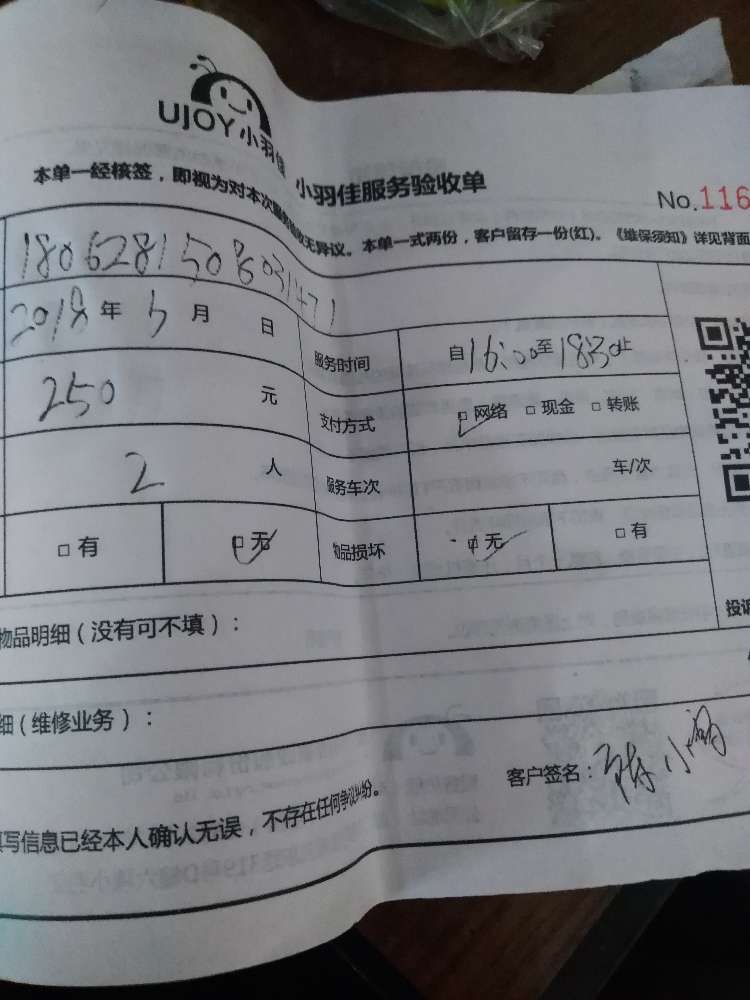 UJOY小羽佳
小羽佳服务验收单
No.116
本单一经核签，即视为对本次服务验收无异议。本单一式两份，客户留存一份(红)。《维保须知》详见背面
1806281508031471
2018年5月 日 服务时间 自16:00至18:30止
250元 支付方式 网络 现金 转账
2人 服务车次 车/次
有 无 物品损坏 无 有
投诉
物品明细（没有可不填）：
细（维修业务）：
客户签名：陈小
填写信息已经本人确认无误，不存在任何争议纠纷。